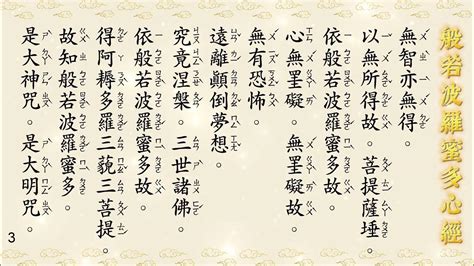 般若波羅蜜多心經
無智亦無得。
以無所得故。菩提薩埵。
依般若波羅蜜多故。
心無罣礙。無罣礙故。
無有恐怖。
遠離顛倒夢想。
究竟涅槃。三世諸佛。
依般若波羅蜜多故。
得阿耨多羅三藐三菩提。
故知般若波羅蜜多。
是大神咒。是大明咒。
3